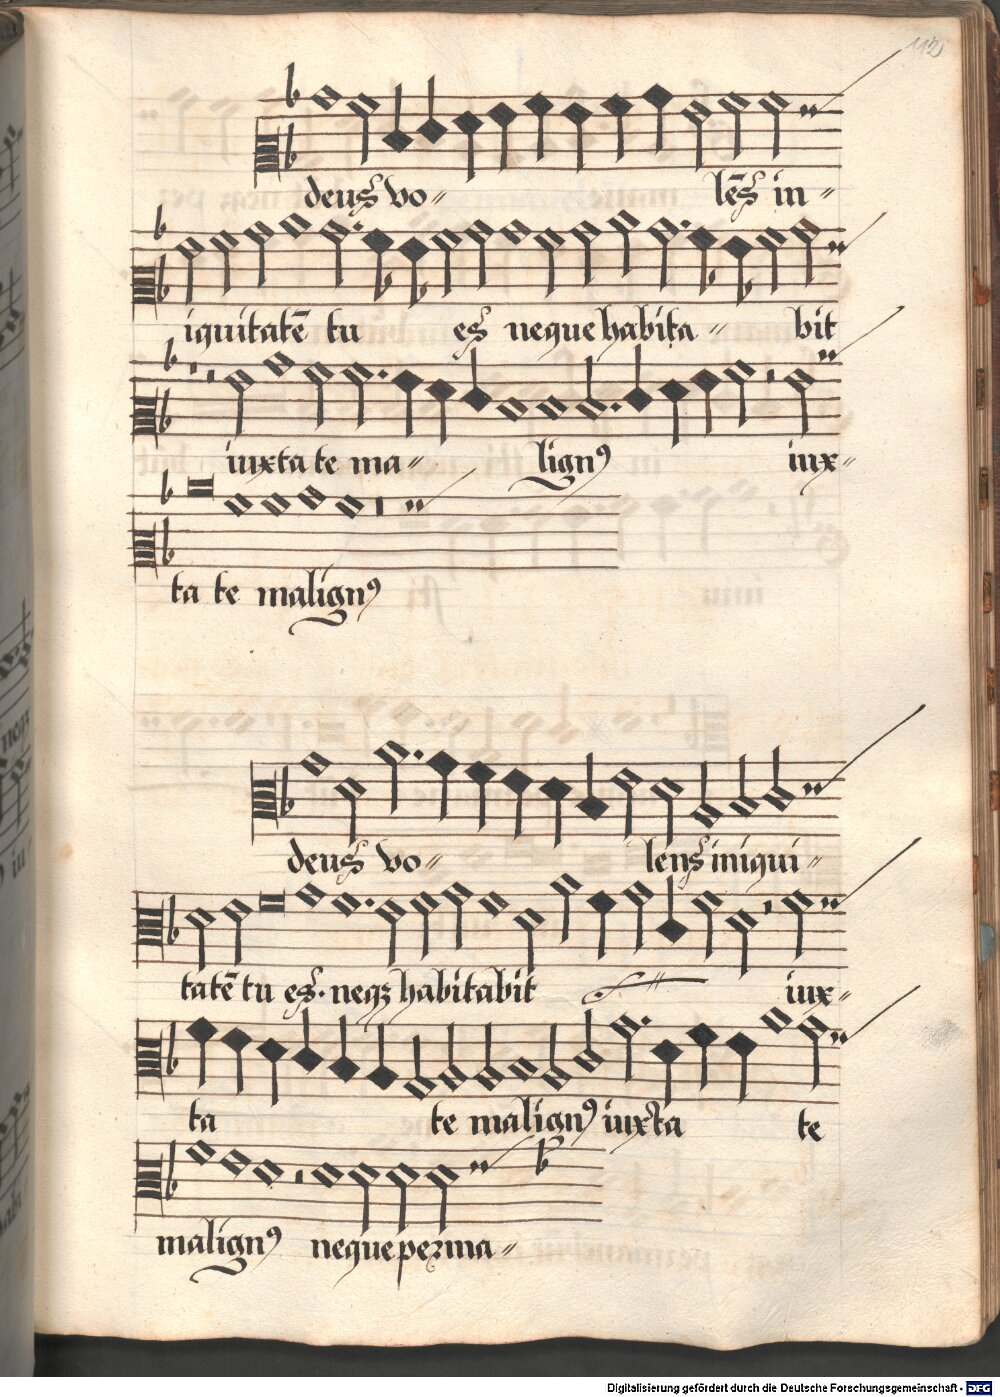 112
deus vo-
lēs in-
iquitatē tu es neque habita - bit
iuxta te ma- lignꝰ iux-
ta te malignꝰ
deus vo- lens iniqui-
tatē tu es. neqꝫ habitabit iux-
ta te malignꝰ iuxta te
malignꝰ neque perma-
Digitalisierung gefördert durch die Deutsche Forschungsgemeinschaft - DFG